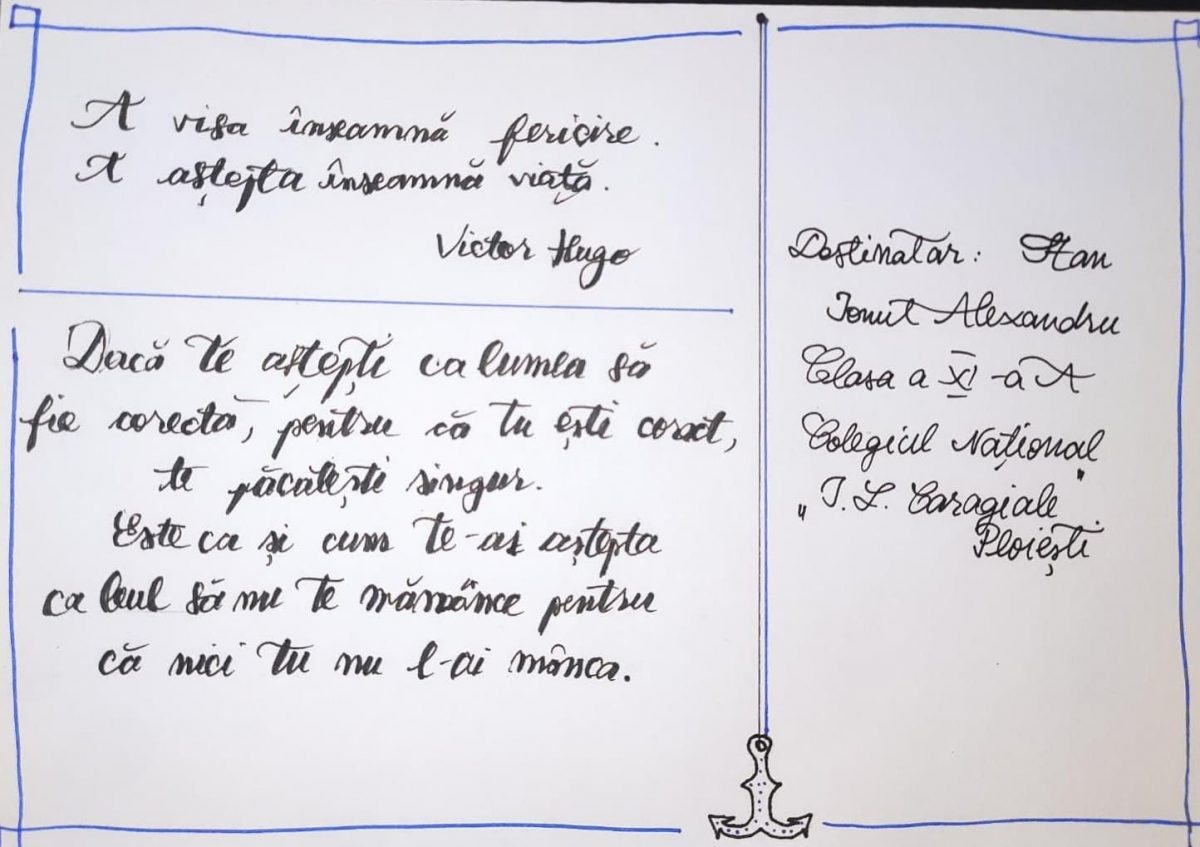 A visa înseamnă fericire.
A aștepta înseamnă viață.
Victor Hugo
Dacă te aștepți ca lumea să
fie corectă, pentru că tu ești corect,
te păcălești singur.
Este ca și cum te-ai aștepta
ca leul să nu te mămânce pentru
că nici tu nu l-ai mânca.
Destinatar: Stan
Ionut Alexandru
Clasa a XI-a A
Colegiul Național
„I. L. Caragiale"
Ploiești